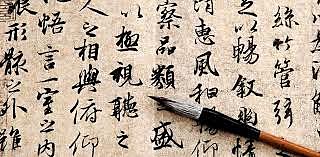 絲竹管弦
足以暢叙幽情
清惠風和暢仰
察品類盛
以極視聽之
人之相與俯仰
悟言一室之内
形骸之外雖